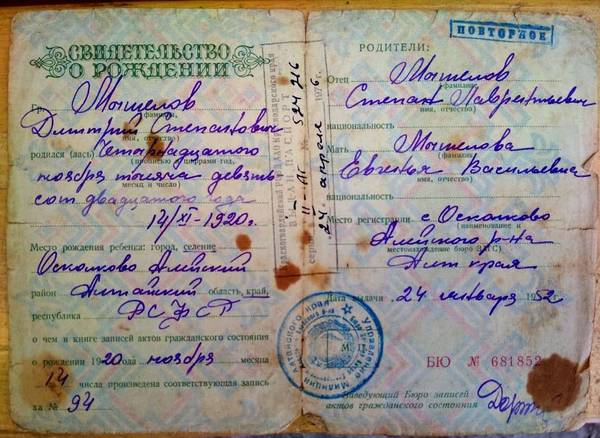 СВИДЕТЕЛЬСТВО
О РОЖДЕНИИ
Гр. Мышелов
(фамилия,
Дмитрий Степанович
имя, отчество)
родился (лась) Четырнадцатого
(прописью и цифрами год,
ноября тысяча девять
месяц и число)
сот двадцатого года
14/XI-1920г.
Место рождения ребенка: город, селение
Осколково Алейский
район Алтайский область, край,
республика РСФСР
о чем в книге записей актов гражданского состояния
о рождении 1920 года ноября месяца
14 числа произведена соответствующая запись
за № 94
ВЫДАН ПАСПОРТ
II-АГ № 524716
24 апреля 1976 г.
ПОВТОРНОЕ
РОДИТЕЛИ:
Отец Мышелов
(фамилия,
Степан Лаврентьевич
имя, отчество)
национальность
Мать Мышелова
(фамилия,
Евгенья Васильевна
имя, отчество)
национальность
Место регистрации с Осколково
(наименование и
Алейского р-на
местонахождение бюро ЗАГС)
Алт края
Дата выдачи 24 января 1952 г.
М. П.
Управление Милиции Алтайского края
БЮ № 681852
Заведующий Бюро записей
актов гражданского состояния